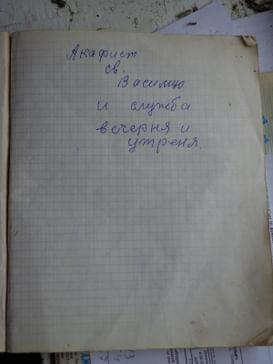 Акафист
св.
Василию
и служба
вечерня и
утреня.